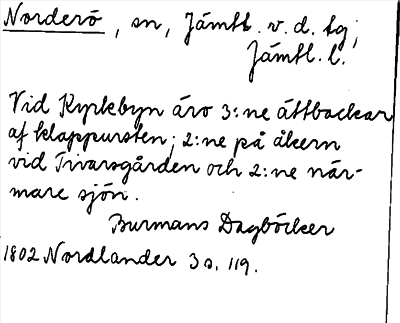 Norderö, sn, Jämtl. v. d. tg;
Jämtl. l.
Vid Kyrkbyn äro 3:ne ättbackar
af klappursten; 2:ne på åkern
vid Ivarsgården och 2:ne när-
mare sjön.
Burmans Dagböcker
1802 Nordlander 3 s. 119.